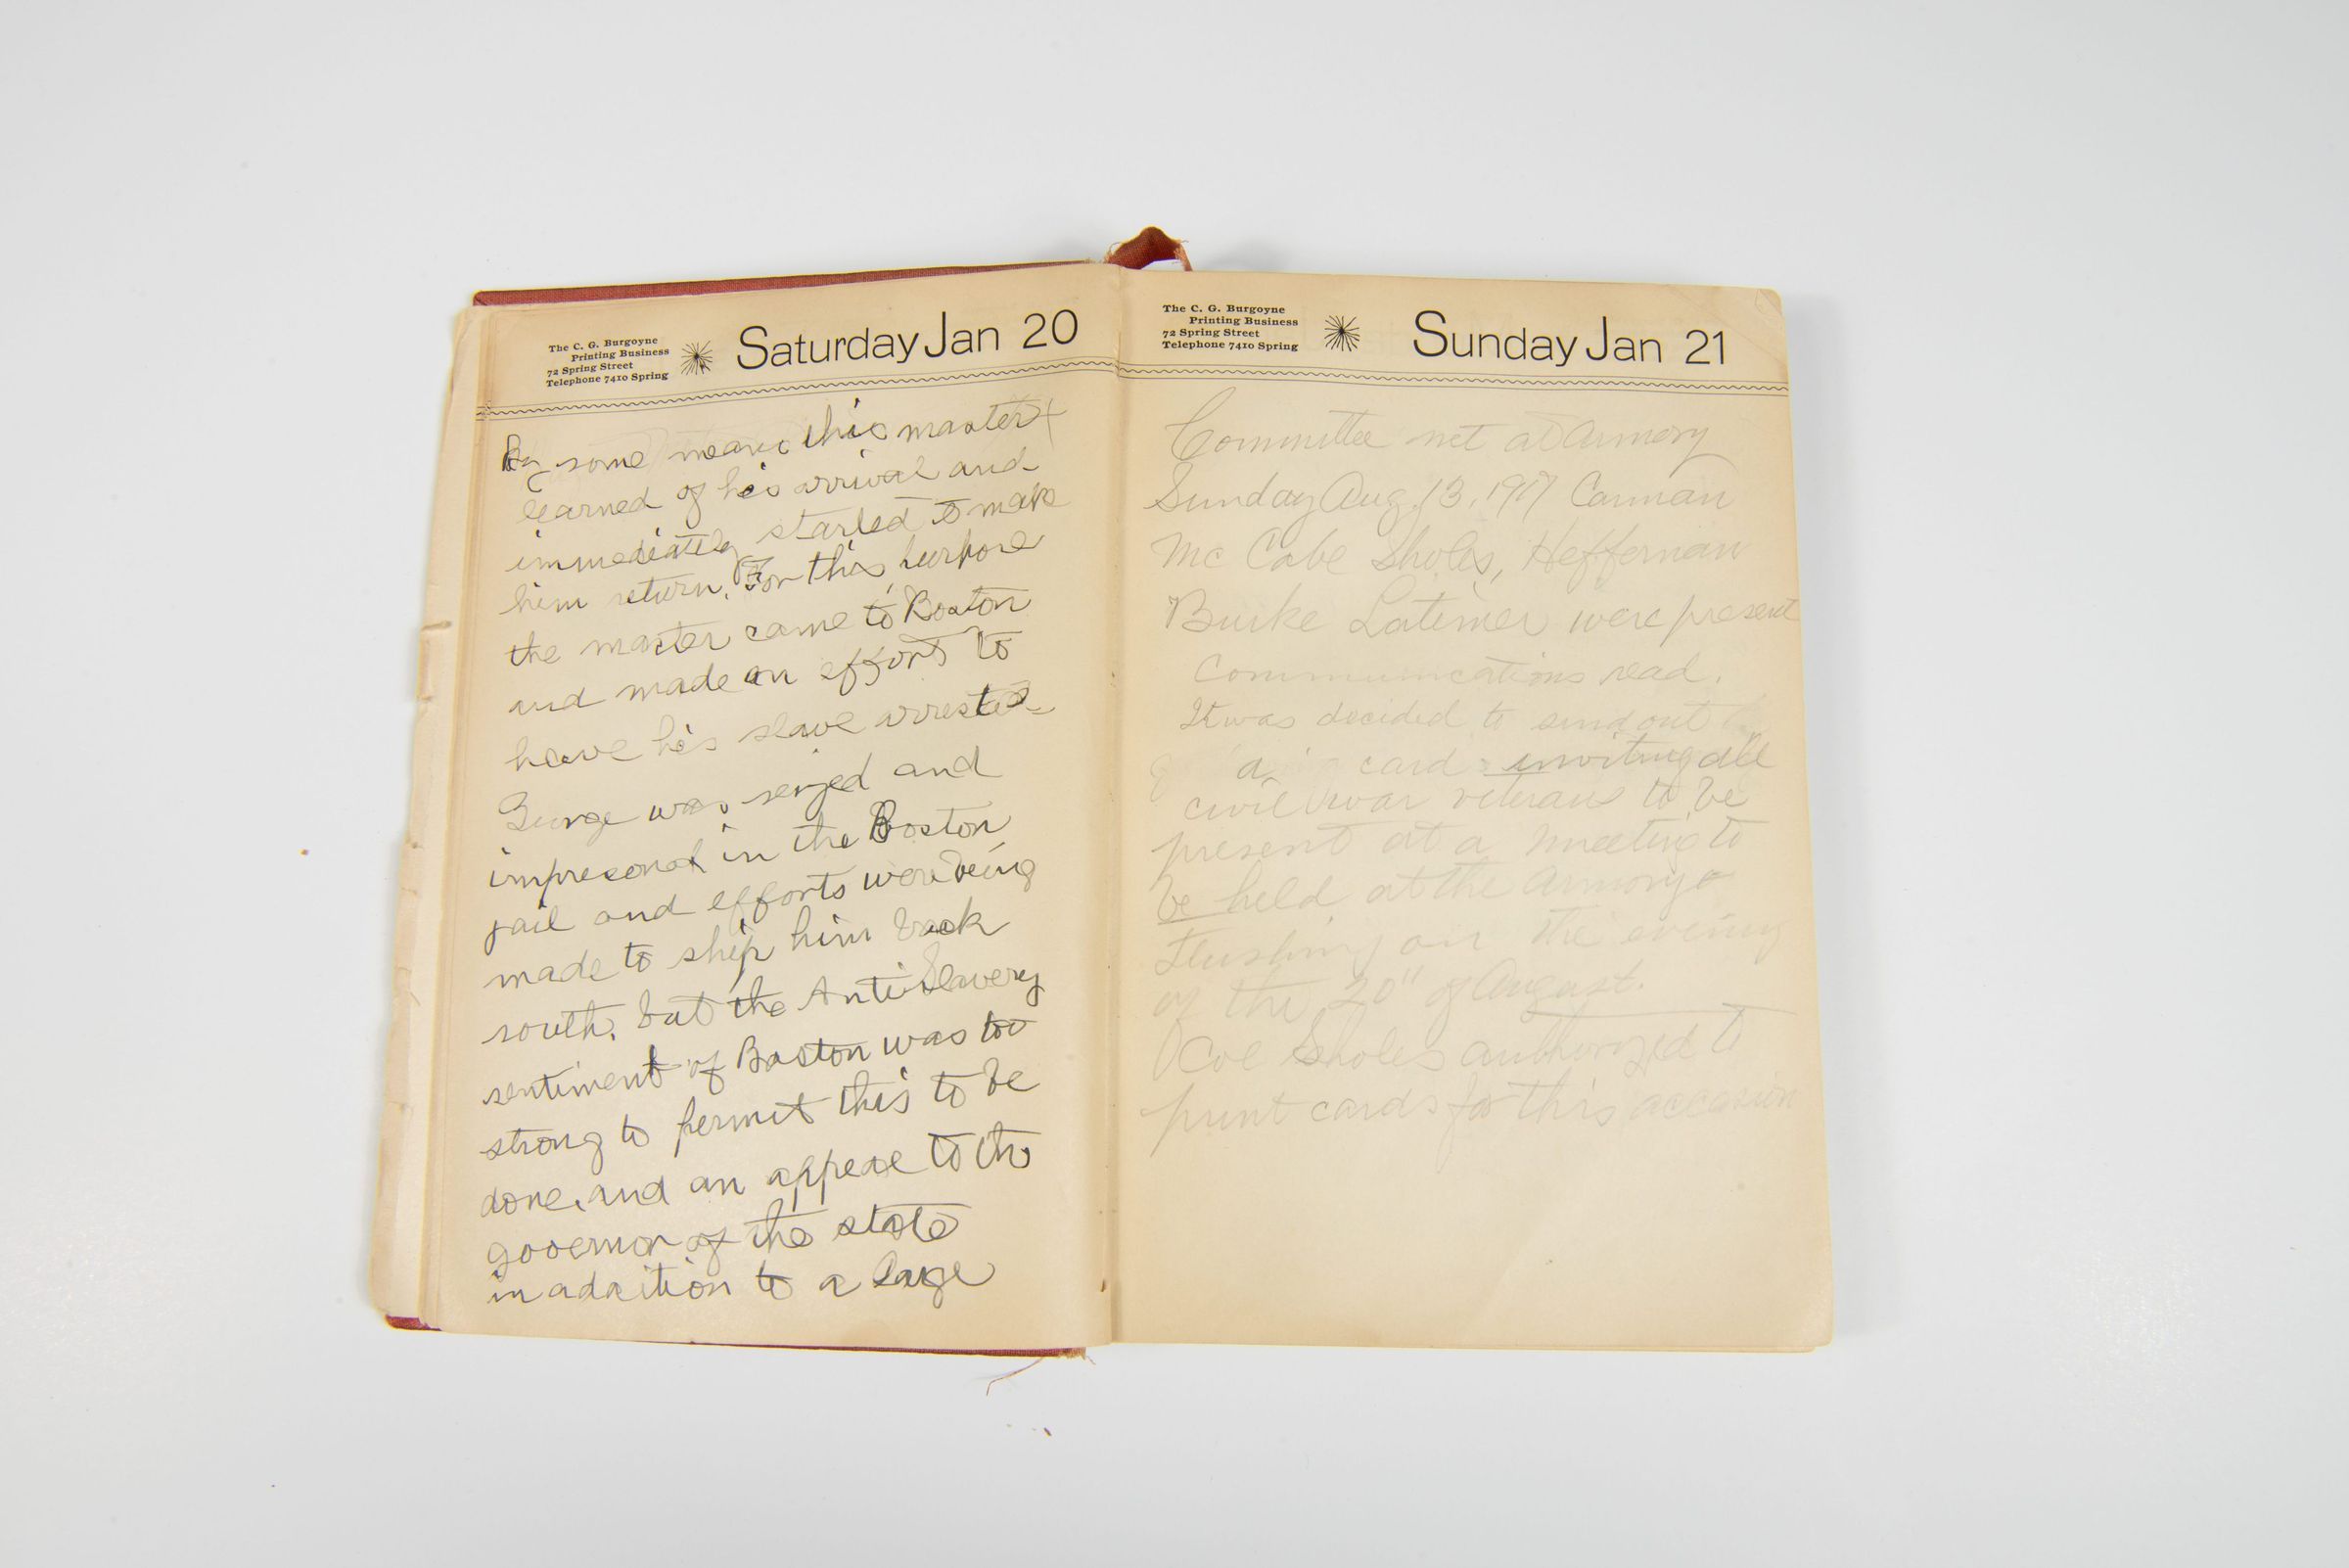 The C. G. Burgoyne
Printing Business
72 Spring Street
Telephone 7410 Spring
Saturday Jan 20
By some means this master
learned of his arrival and
immediately started to make
him return. For this purpose
the master came to Boston
and made an effort to
have his slave arrested
George was seized and
impresonod in the Boston
jail and efforts were being
made to ship him back
south, but the Anti Slavery
sentiment of Boston was too
strong to permit this to be
done, and an appeal to the
governor of the state
in addition to a large
The C. G. Burgoyne
Printing Business
72 Spring Street
Telephone 7410 Spring
Sunday Jan 21
Committee met at Armory
Sunday Aug. 13, 1917 Carman
Mc Cabe Sholes, Heffernan
Burke Latimer were present
Communications read.
It was decided to send out
a card inviting all
civil war veterans to be
present at a meeting to
be held at the Armory
Flushing on the evening
of the 20" of August.
Coe Sholes authorized to
print cards for this occasion